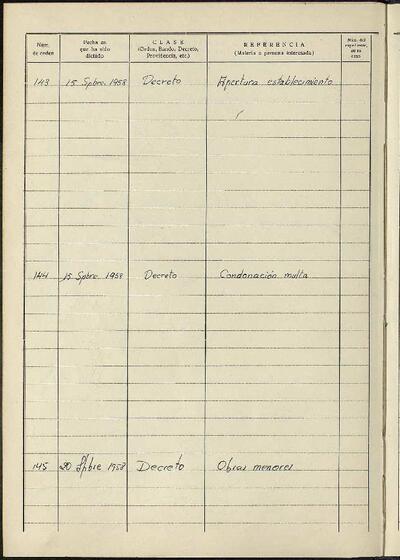 Núm. de orden
Fecha en que ha sido dictado
CLASE
(Orden, Bando, Decreto, Providencia, etc.)
REFERENCIA
(Materia o persona interesada)
Núm. del expediente, en su caso
143 15 Spbre. 1958 Decreto Apertura establecimiento
144 15 Spbre. 1958 Decreto Condonación multa
145 20 Spbre 1958 Decreto Obras menores